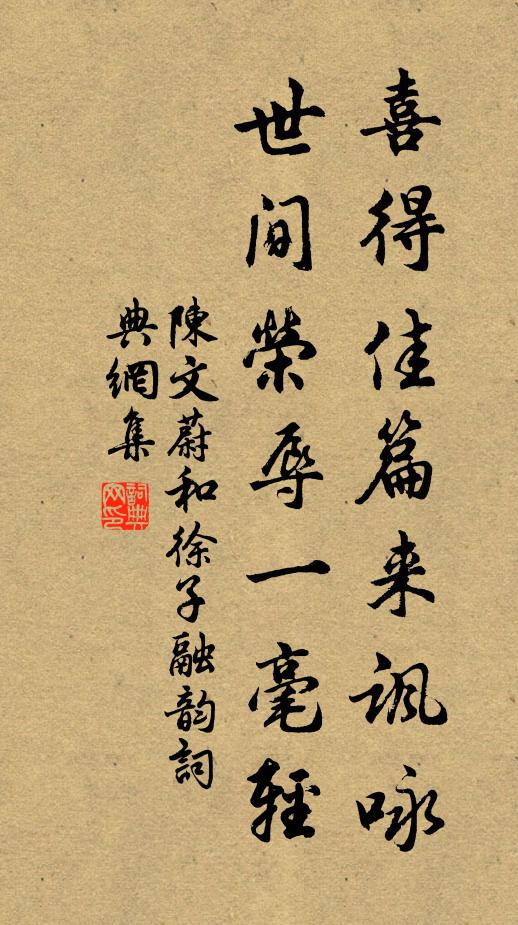 喜得佳篇来讽咏
世间荣辱一毫轻
陳文蔚和徐子融韵詞
典網集
詞典
网印